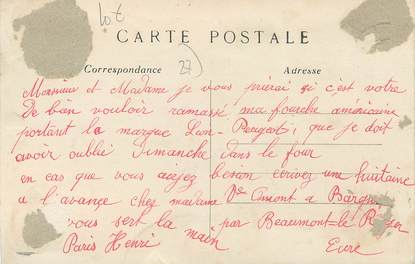 Lot
CARTE POSTALE
Correspondance
27
Adresse
Monsieur et Madame je vous prierai si c'est votre
De bân vouloir ramassé ma fourche américaine
portant la marque Peugeot, que je doit
avoir oublié Dimanche dans le four
en cas que vous auyez besoin ecrivez une huitaine
a l'avance chez madame Vve a
vous sert la main par Beaumont=le Roger
Paris Henri Eure